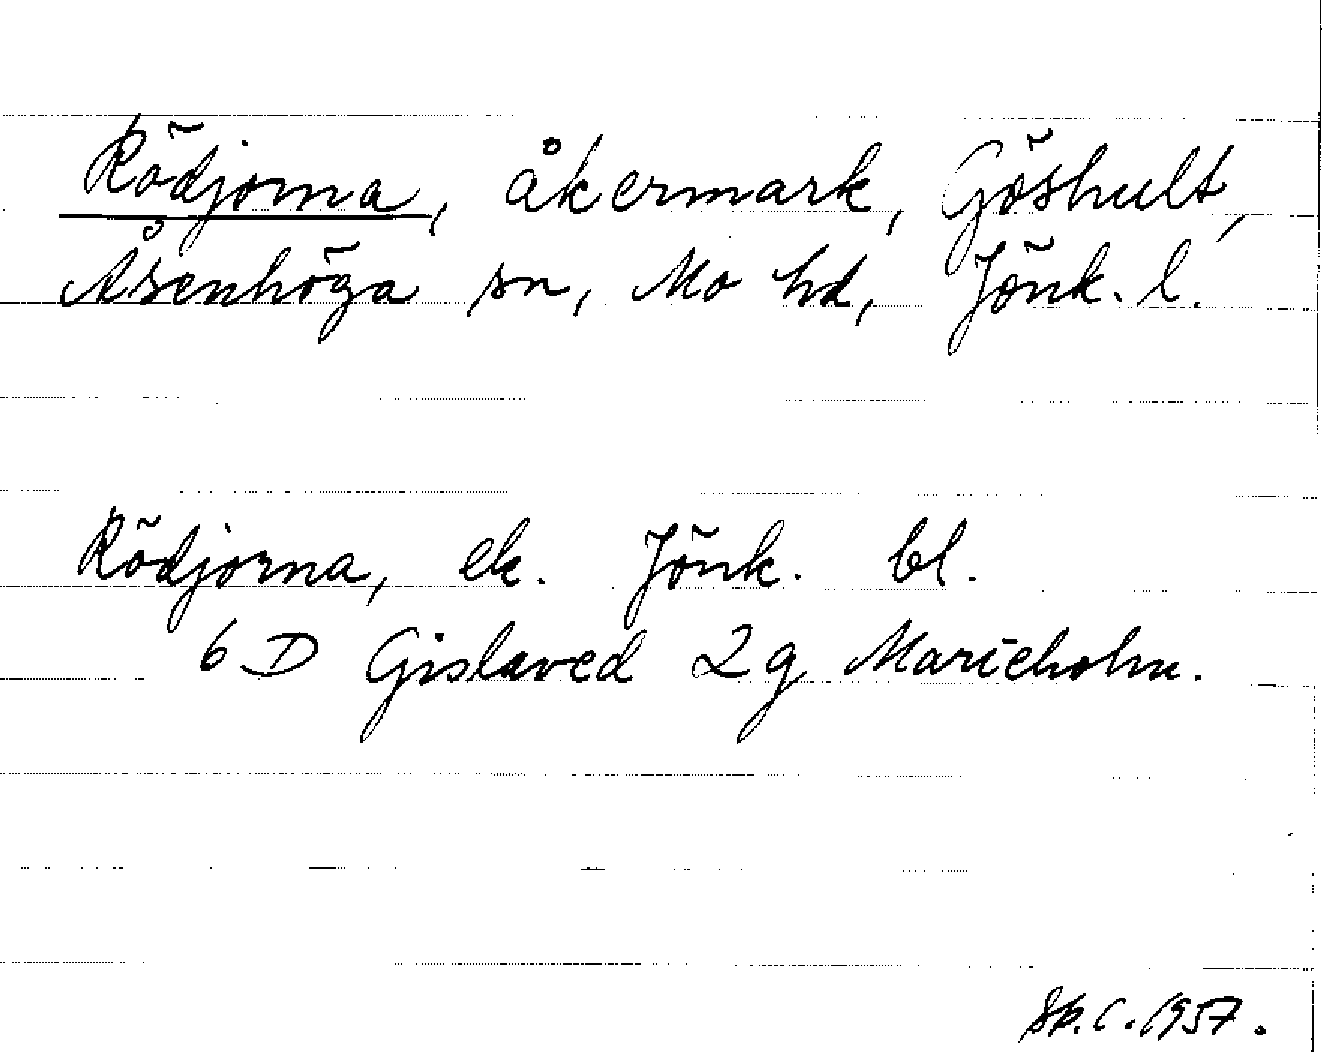 Rödjorna, åkermark, Göshult,
Åsenhöga sn, Mo hd, Jönk. l.
Rödjorna, ek. Jönk. bl.
6 D Gislaved 2g Marieholm.
Sk. C. 1957.